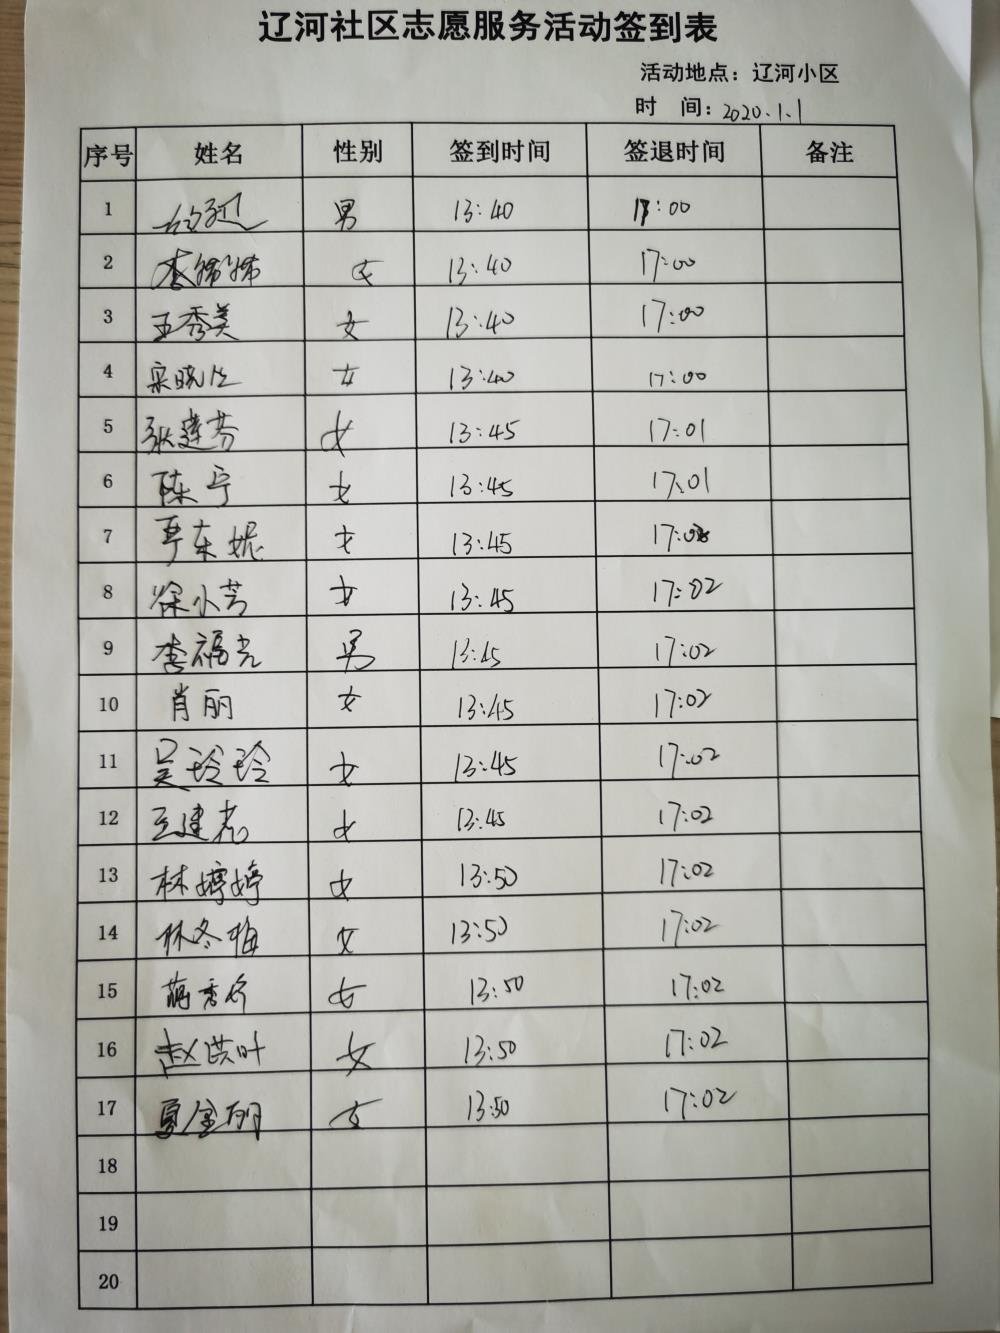 辽河社区志愿服务活动签到表
活动地点：辽河小区
时 间：2020.1.1
序号 姓名 性别 签到时间 签退时间 备注
1 男 13:40 17:00
2 李娣娣 女 13:40 17:00
3 王秀美 女 13:40 17:00
4 女 13:40 17:00
5 张建芬 女 13:45 17:01
6 陈宁 女 13:45 17:01
7 女 13:45
8 徐小芳 女 13:45 17:02
9 李福光 男 13:45 17:02
10 肖丽 女 13:45 17:02
11 吴玲玲 女 13:45 17:02
12 女 13:45 17:02
13 林婷婷 女 13:50 17:02
14 林冬梅 女 13:50 17:02
15 女 13:50 17:02
16 赵洪叶 女 13:50 17:02
17 夏金丽 女 13:50 17:02
18
19
20